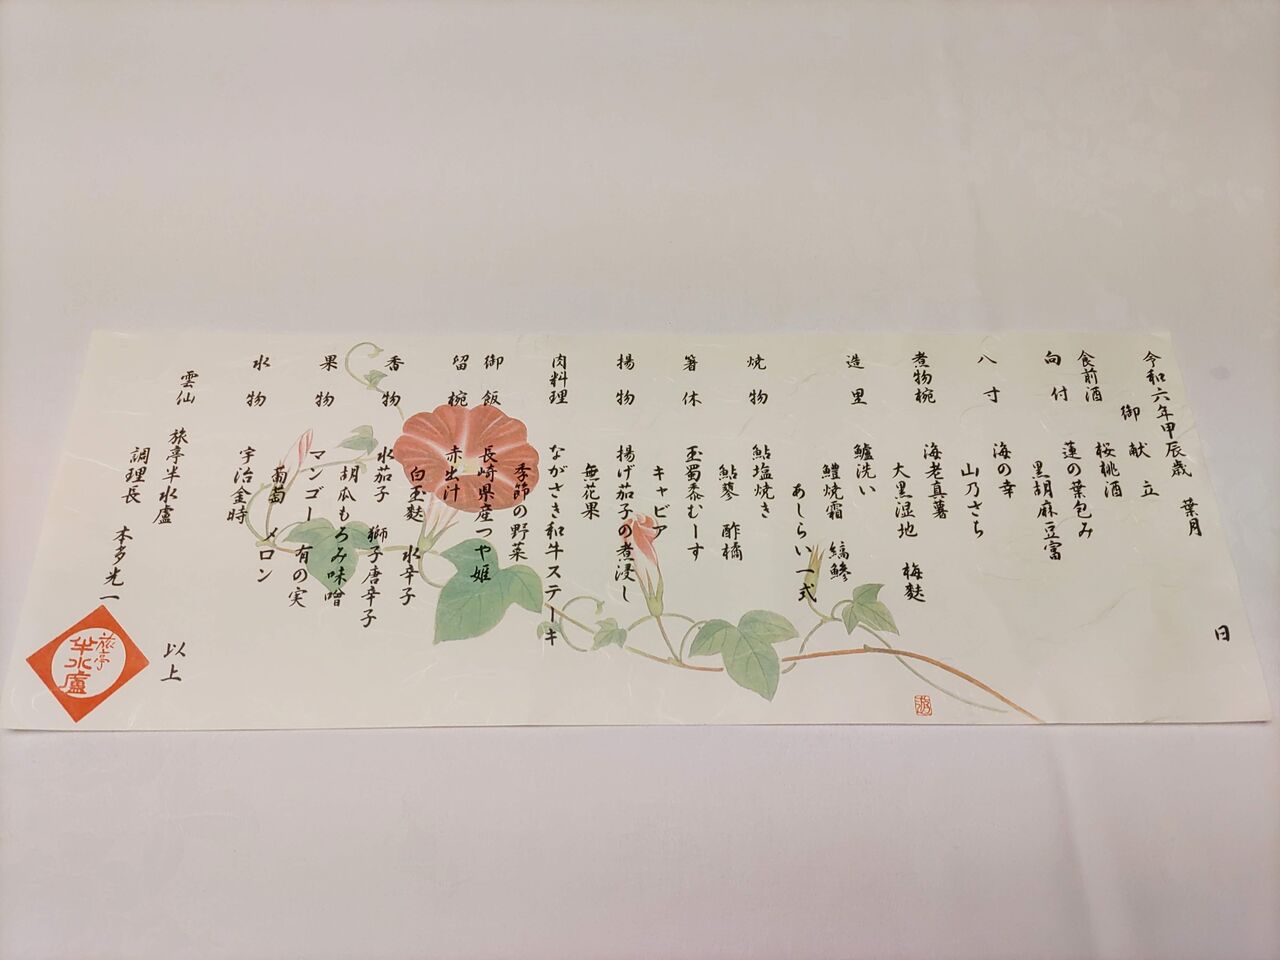 令和六年甲辰歳 葉月 日
御献立
食前酒 桜桃酒
向付 蓮の葉包み
黒胡麻豆富
八寸 海の幸
山乃さち
煮物椀 海老真薯
大黒湿地 梅麩
造里 鱸洗い
鱧焼霜 縞鯵
あしらい一式
焼物 鮎塩焼き
鮎蓼 酢橘
箸休 玉蜀黍むーす
キャビア
揚物 揚げ茄子の煮浸し
無花果
肉料理 ながさき和牛ステーキ
季節の野菜
御飯 長崎県産つや姫
留椀 赤出汁
白玉麩 水辛子
香物 水茄子 獅子唐辛子
胡瓜もろみ味噌
果物 マンゴー 有の実
葡萄 メロン
水物 宇治金時
以上
雲仙 旅亭半水盧
調理長 本多光一
旅亭
半水盧